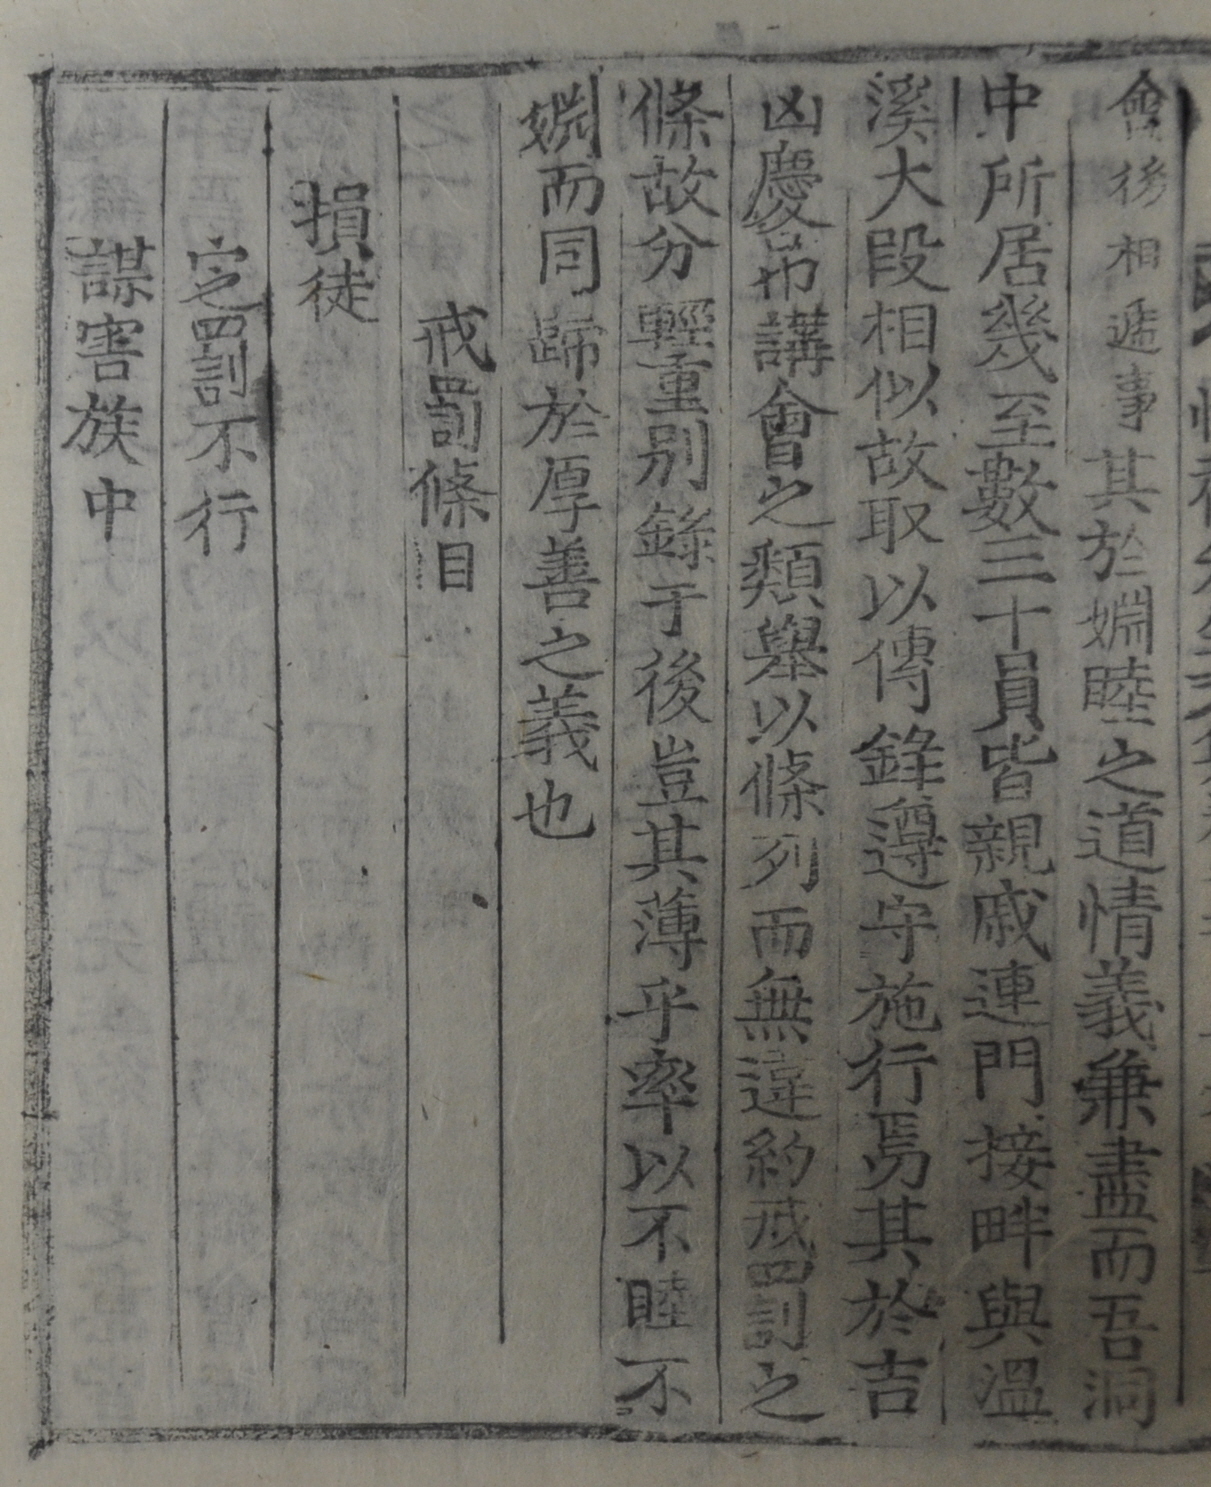 會後相遞事其於婣睦之道情義兼盡而吾洞
中所居幾至數三十員皆親戚連門接畔與溫
溪大段相似故取以傳鋒遵守施行焉其於吉
凶慶吊講會之類舉以條列而無違約戒罰之
條故分輕重別錄于後豈其薄乎率以不睦不
婣而同歸於厚善之義也
戒罰條目
損徒
定罰不行
謀害族中